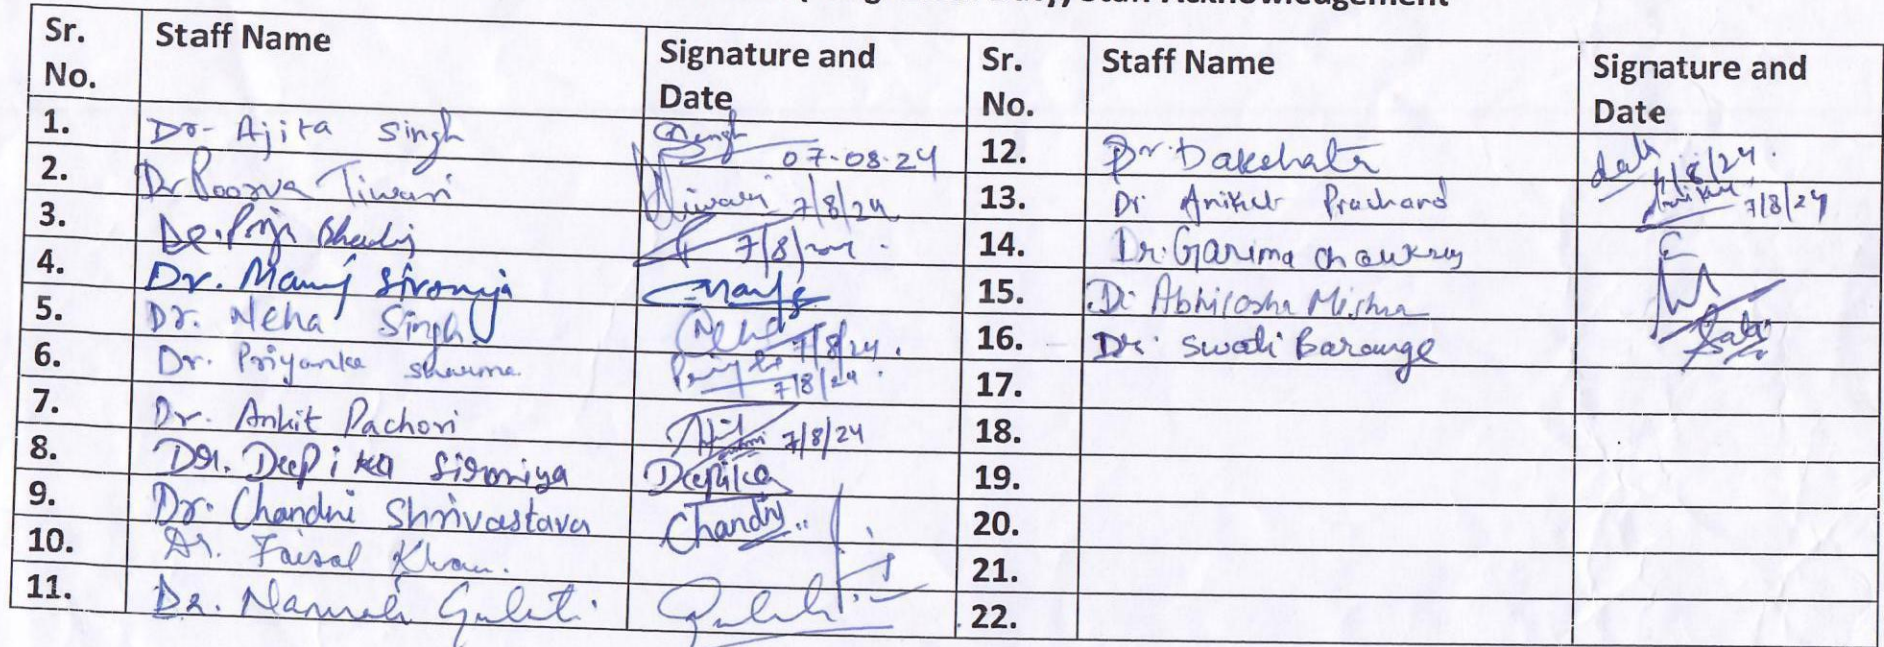 Staff Acknowledgement
Sr. No. Staff Name Signature and Date Sr. No. Staff Name Signature and Date
1. Dr. Ajita Singh Singh 07.08.24 12. Dr. Dakshata 7/8/24.
2. Dr Poorva Tiwari Tiwari 7/8/24 13. Dr Aniket Prachand Aniket 7/8/24
3. Dr. 7/8/ 14. Dr. Garima Chouksey
4. Dr. Manoj Sironiya Manoj 15. Dr Abhilasha Mishra
5. Dr. Neha Singh Neha 7/8/24. 16. Dr. Swati Barange
6. Dr. Priyanka Sharma 7/8/24. 17.
7. Dr. Ankit Pachori 7/8/24 18.
8. Dr. Deepika Sironiya Deepika 19.
9. Dr. Chandni Shrivastava Chandni 20.
10. Dr. Faisal Khan. 21.
11. Dr. Gulati 22.